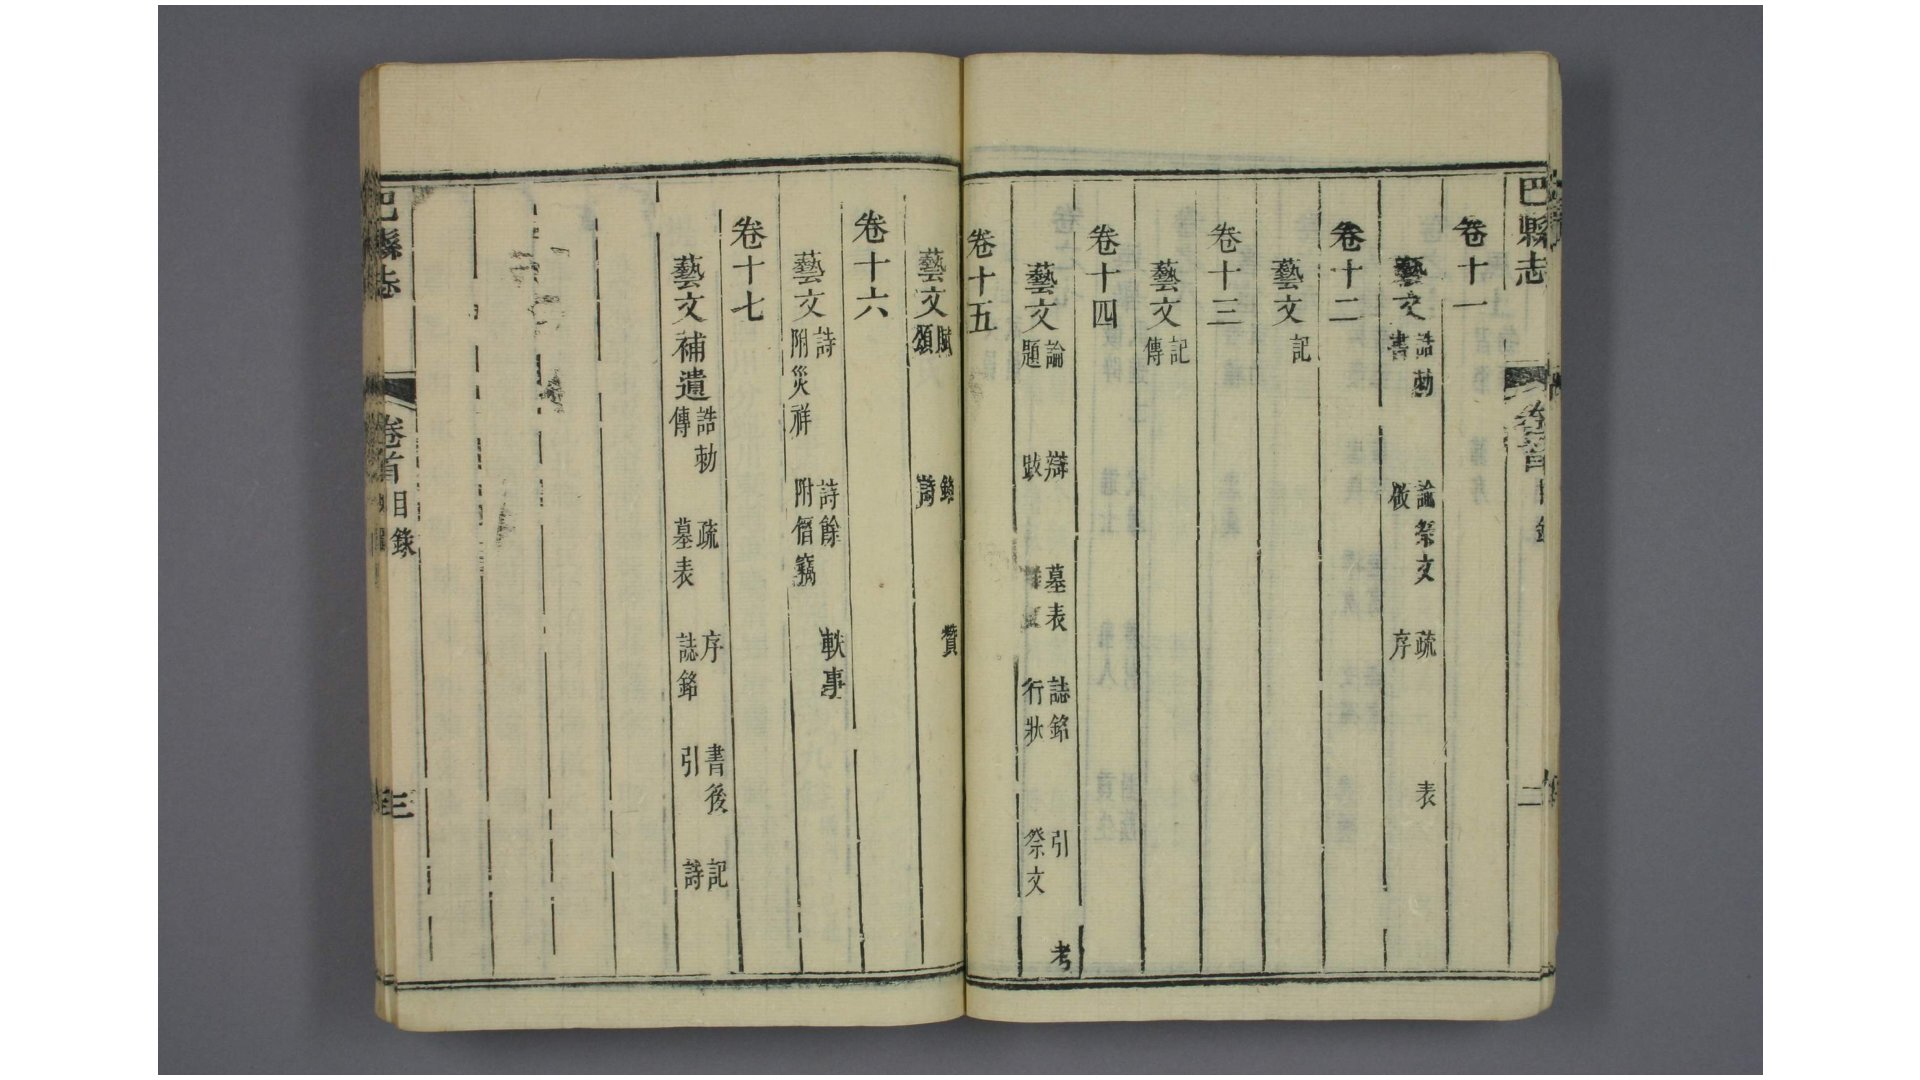 巴縣志
卷首
目錄
二
卷十一
藝文
誥勅 論祭文 疏 表
書 啟 序
卷十二
藝文
記
卷十三
藝文
記
傳
卷十四
藝文
論 辯 墓表 誌銘 引 考
題 跋 行狀 祭文
卷十五
藝文
賦 錄 贊
頌 詩
卷十六
藝文
詩 詩餘 軼事
附災祥 附僭竊
卷十七
藝文補遺
誥勅 疏 序 書後 記
傳 墓表 誌銘 引 詩
巴縣志
卷首
目錄
三